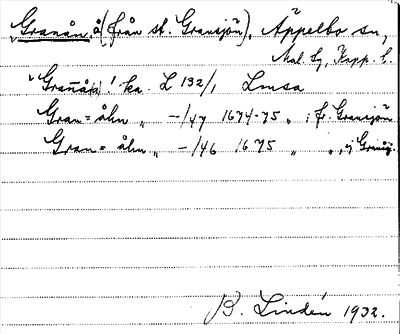 Granån å (från st. Gransjön), Äppelbo sn,
Mal. Sg, Kopp. l.
"Granåå" ! ka. L 132/1 Lmsa
Gran=åhn „ -/47 1674-75 „ ; fr. Gransjön
Gran= åhn „ -/46 1675 „
B. Lindén 1932.